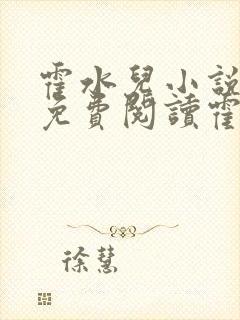 霍水兒小說
免費閱讀霍
徐慧